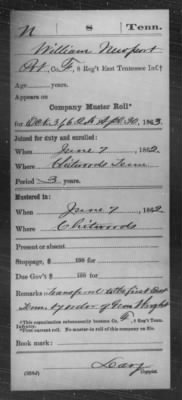 N | 8 | Tenn.
William Newport
Pvt, Co. F, 8 Reg't East Tennessee Inf.†
Age years.
Appears on
Company Muster Roll*
for Oct 31/62 to Apl 30, 1863
Joined for duty and enrolled:
When June 7, 1862
Where Chitwoods Tenn
Period 3 years.
Mustered in:
When June 7, 1862
Where Chitwoods
Present or absent
Stoppage, $ 100 for
Due Gov't $ 100 for
Remarks: Transferred to the first East
Tenn by order of Gen Wright
*This organization subsequently became Co. F, 8 East Tennessee
Infantry.
Book mark:
Copyist.